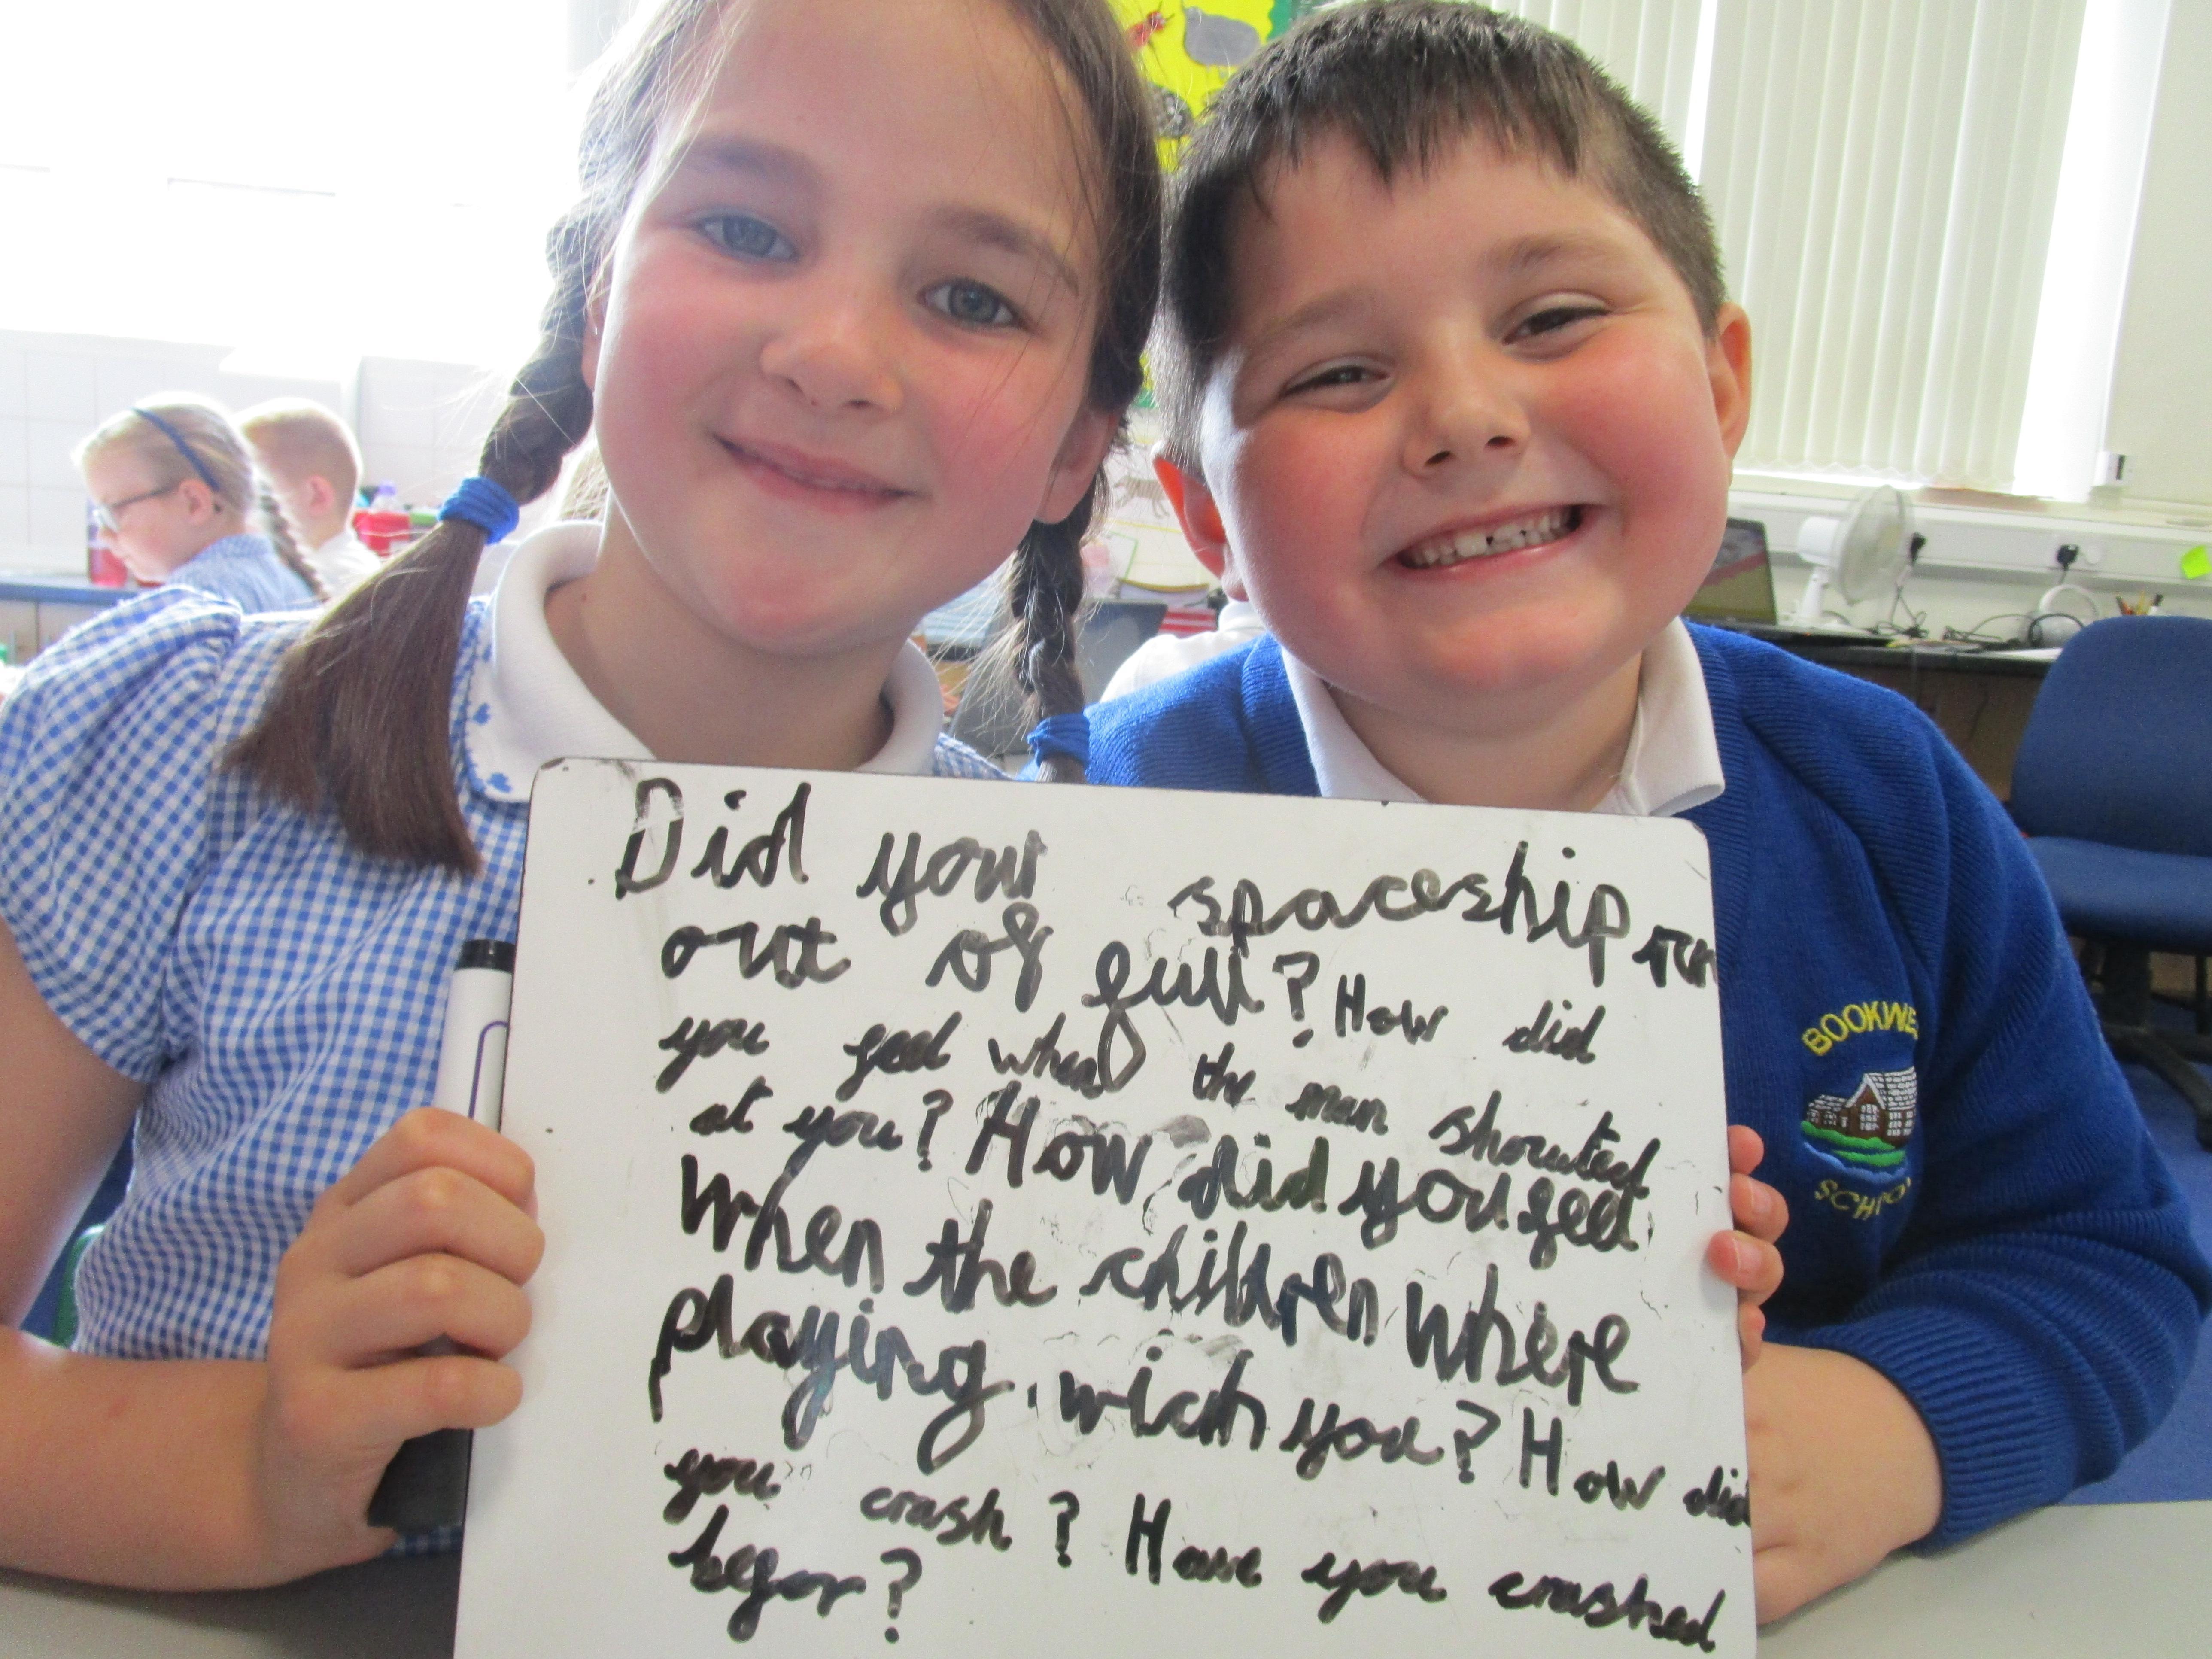 Did your spaceship run
out of full? How did
you feel when the man shouted
at you? How did you feel
when the children where
playing wich you? How did
you crash? Have you crashed
befor?
BOOKWE
SCHOO